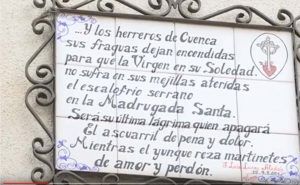 ...Y los herreros de Cuenca
sus fraguas dejan encendidas
para que la Virgen en su Soledad.
no sufra en sus mejillas ateridas
el escalofrio serrano
en la Madrugada Santa.
Será su última lágrima quien apagará
El ascuarril de pena y dolor.
Mientras el yunque roza martinetes
de amor y perdón.